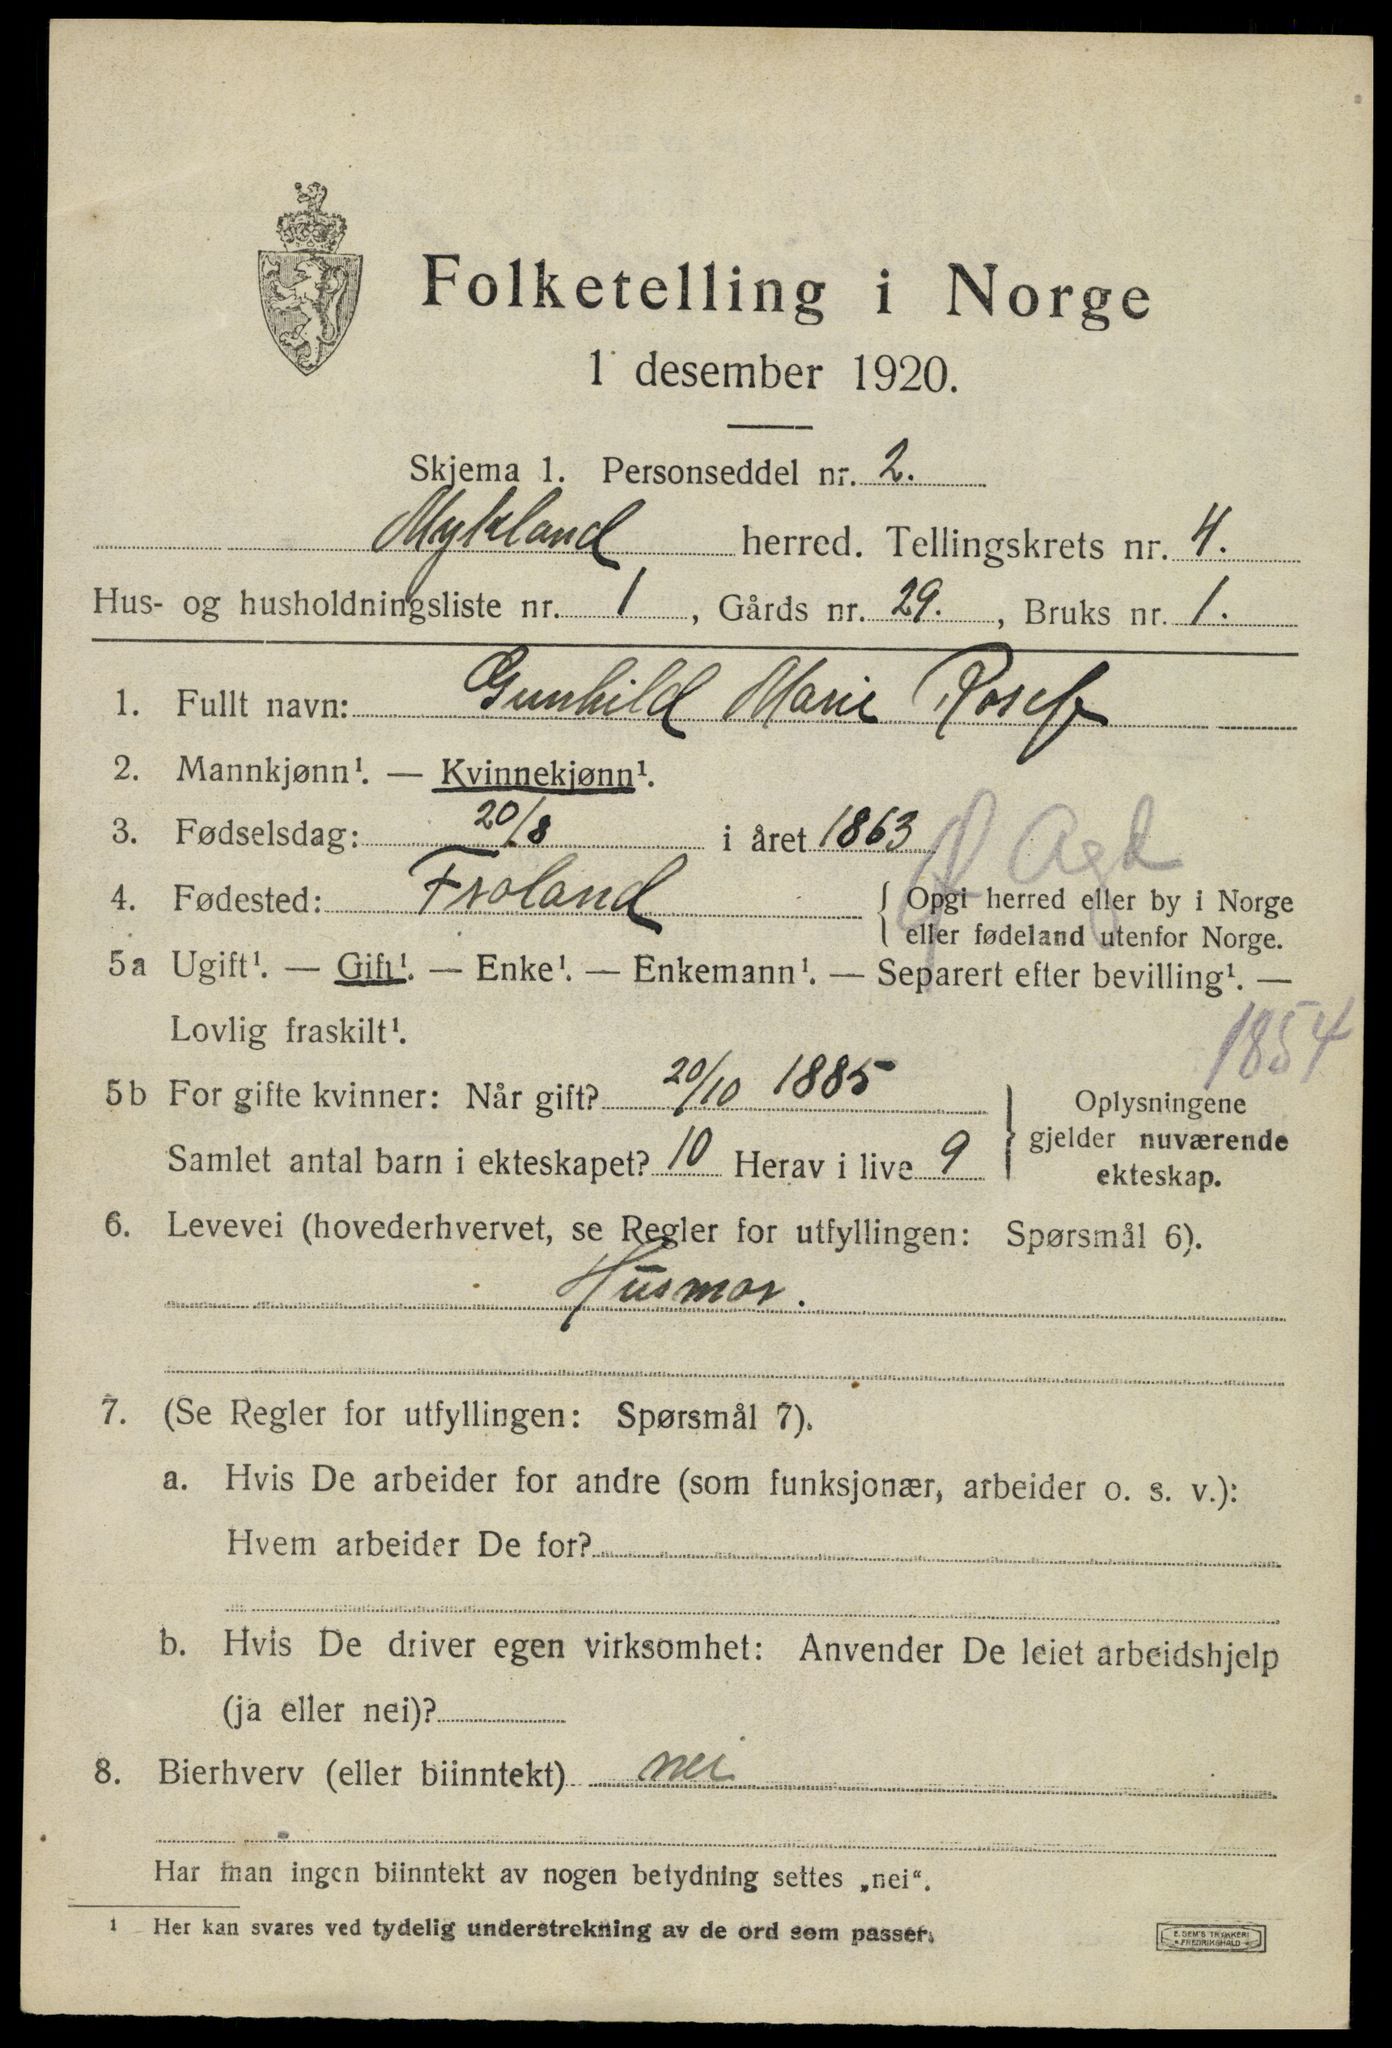 Folketelling i Norge
1 desember 1920.
Skjema 1. Personseddel nr. 2.
Mykland herred. Tellingskrets nr. 4.
Hus- og husholdningsliste nr. 1, Gårds nr. 29., Bruks nr. 1.
1. Fullt navn: Gunhild Marie Rosef
2. Mannkjønn¹. — Kvinnekjønn¹.
3. Fødselsdag: 20/8 i året 1863
Agd
4. Fødested: Froland { Opgi herred eller by i Norge
eller fødeland utenfor Norge.
5a Ugift¹. — Gift¹. — Enke¹. — Enkemann¹. — Separert efter bevilling¹. —
Lovlig fraskilt¹.
1854
5b For gifte kvinner: Når gift? 20/10 1885 } Oplysningene
gjelder nuværende
Samlet antal barn i ekteskapet? 10 Herav i live 9 ekteskap.
6. Levevei (hovederhvervet, se Regler for utfyllingen: Spørsmål 6).
Husmor.
7. (Se Regler for utfyllingen: Spørsmål 7).
a. Hvis De arbeider for andre (som funksjonær, arbeider o. s. v.):
Hvem arbeider De for?
b. Hvis De driver egen virksomhet: Anvender De leiet arbeidshjelp
(ja eller nei)?
8. Bierhverv (eller biinntekt) nei
Har man ingen biinntekt av nogen betydning settes „nei“.
¹ Her kan svares ved tydelig understrekning av de ord som passer.
E. SEM'S TRYKKERI
FREDRIKSHALD